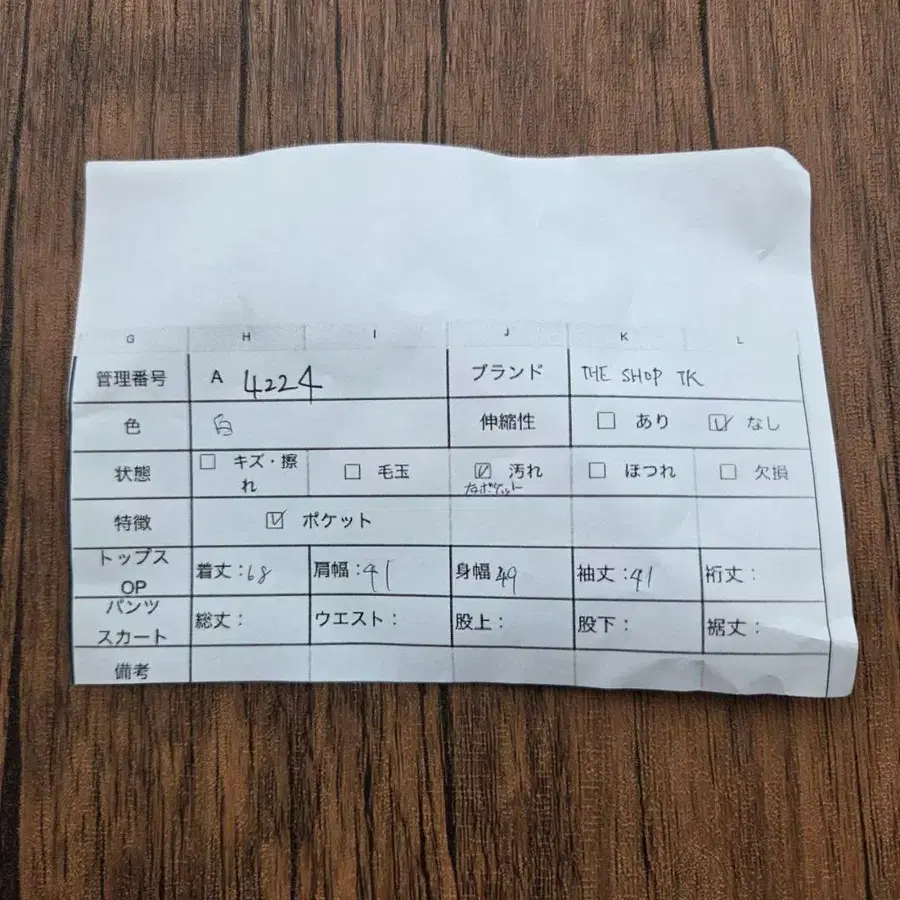 G H I J K L
管理番号 A 4224 ブランド THE SHOP TK
色 白 伸縮性 ☐ あり ☑ なし
状態 ☐ キズ・擦れ ☐ 毛玉 ☑ 汚れ ☐ ほつれ ☐ 欠損
左ポケット
特徴 ☑ ポケット
トップス OP 着丈:68 肩幅:41 身幅 49 袖丈:41 裄丈:
パンツ スカート 総丈: ウエスト: 股上: 股下: 裾丈:
備考